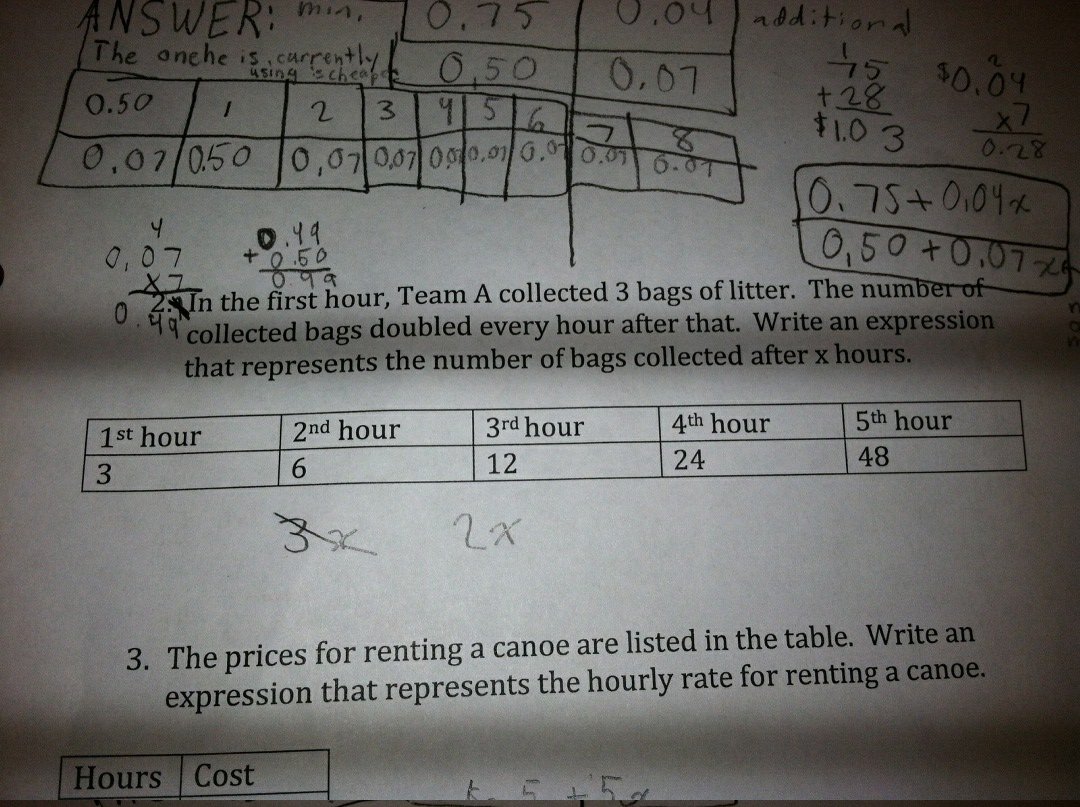 ANSWER: min. 0.75 0.04 additional
The one he is currently using is cheaper 0,50 0.07
0.50 1 2 3 4 5 6 7 8
0.07 0.50 0,07 0.07 0.07 0.07 0.07 0.07 0.07
1
75
+28
$1.03
2
$0.04
x7
0.28
0.75+0.04x
0,50+0.07x
4
0,07
x7
0.49
0.49
+0.50
0.99
2. In the first hour, Team A collected 3 bags of litter. The number of
collected bags doubled every hour after that. Write an expression
that represents the number of bags collected after x hours.
1st hour 2nd hour 3rd hour 4th hour 5th hour
3 6 12 24 48
3x 2x
3. The prices for renting a canoe are listed in the table. Write an
expression that represents the hourly rate for renting a canoe.
Hours Cost
5+5x